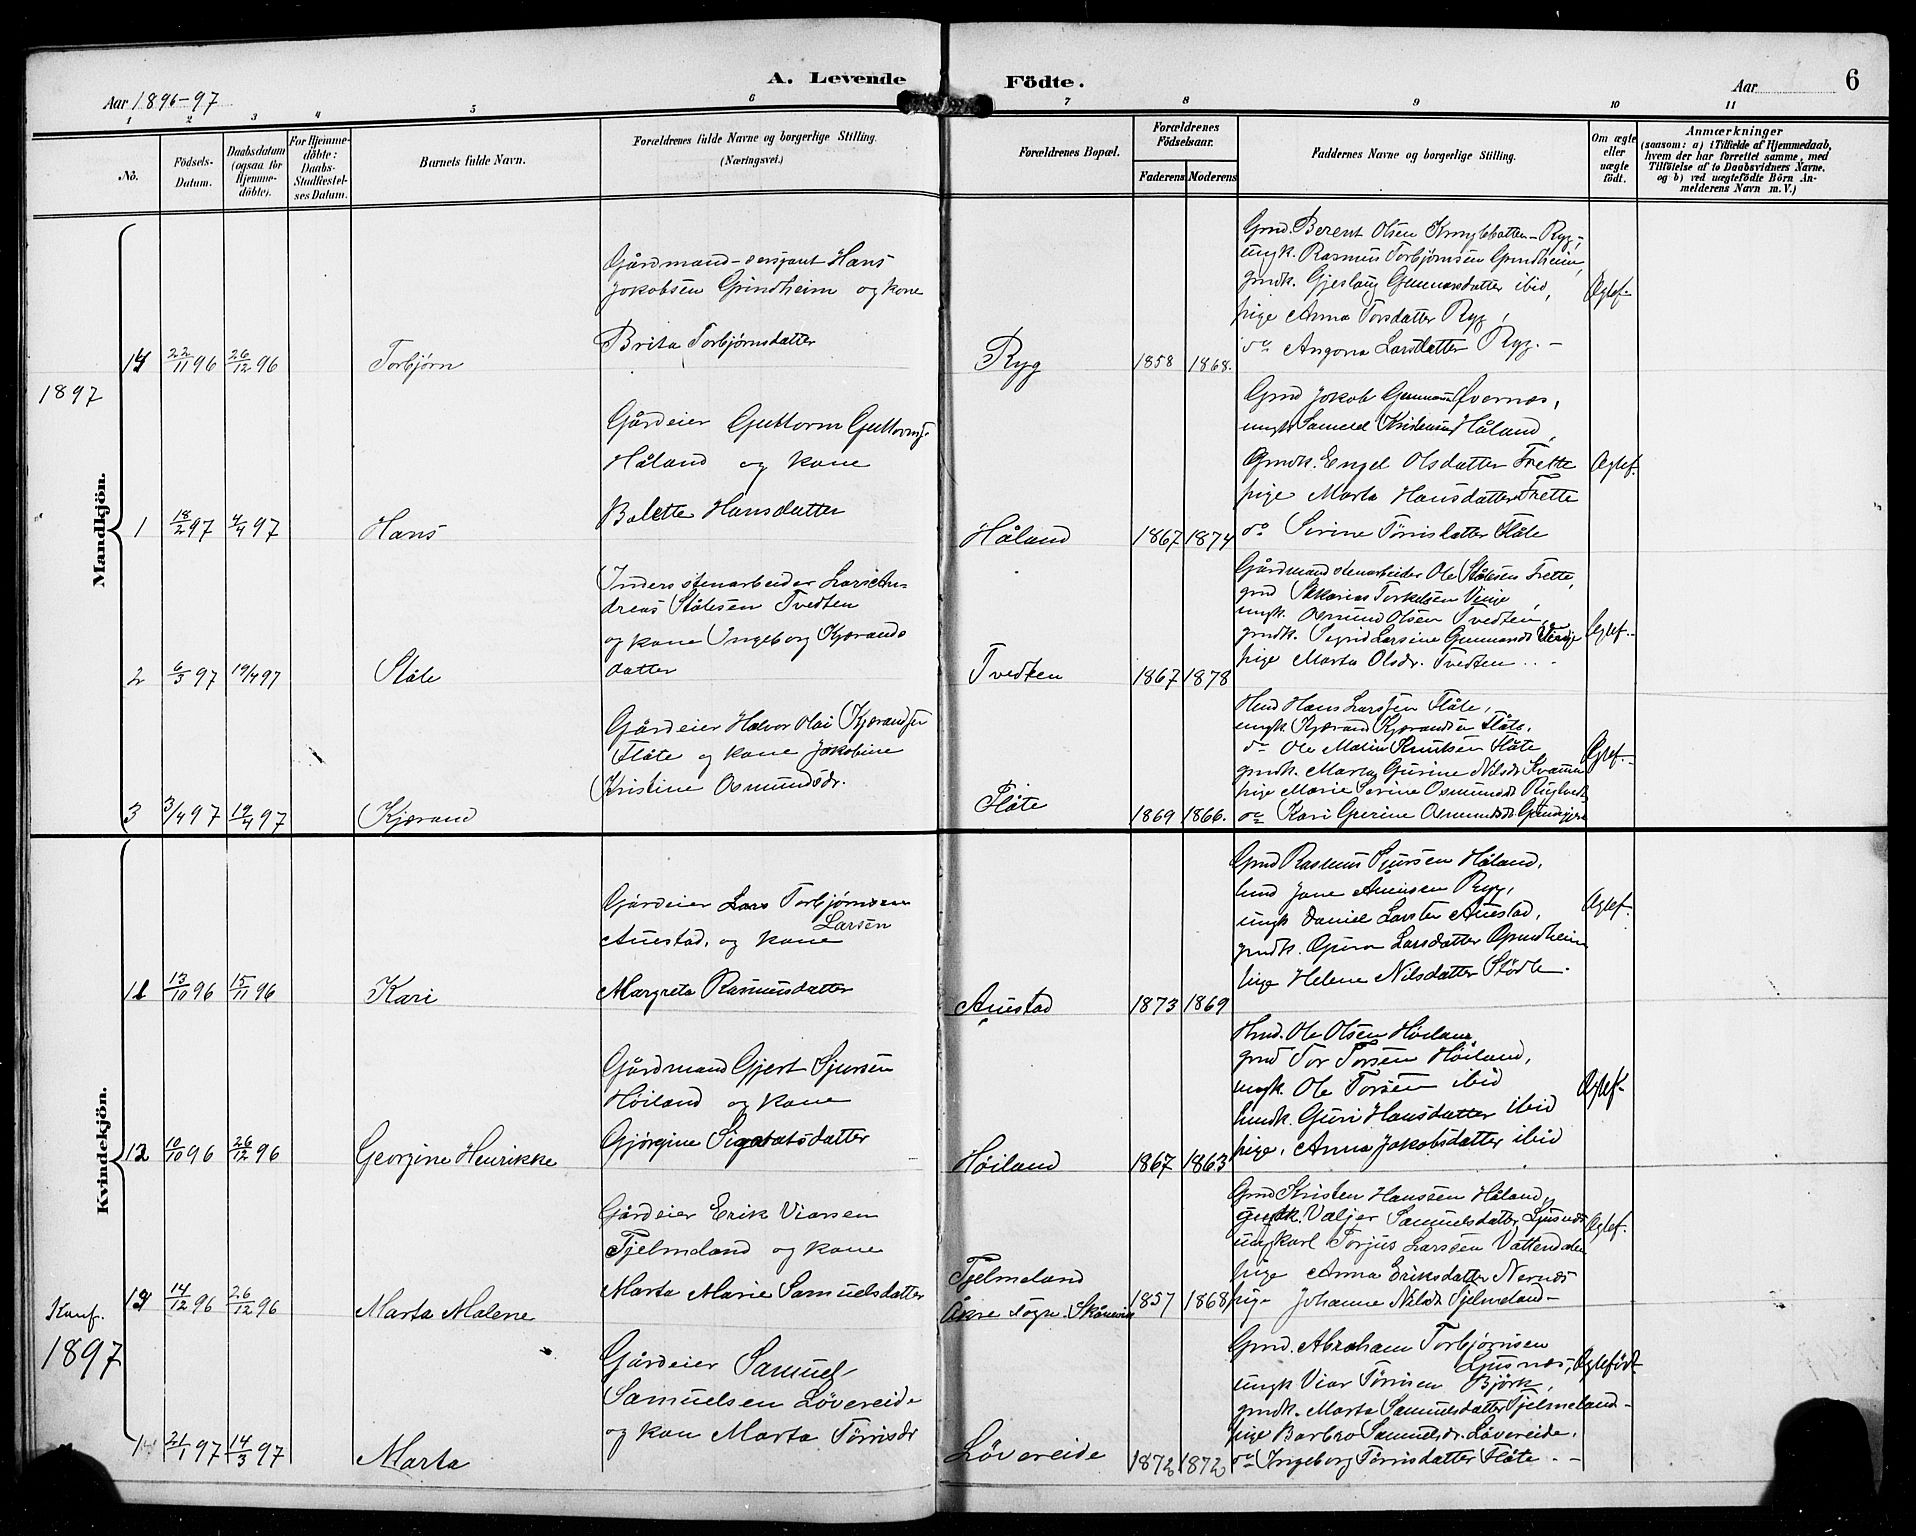 A. Levende Födte.
Aar 1896-97
Aar
6
1 2 3 4 5 6 7 8 9 10 11
No.
Födsels-
Datum.
Daabsdatum
(ogsaa for
Hjemme-
döbte).
For Hjemme-
döbte:
Daabs-
Stadfæstel-
ses Datum.
Barnets fulde Navn.
Forældrenes fulde Navne og borgerlige Stilling.
(Næringsvei.)
Forældrenes Bopæl.
Forældrenes
Fødselsaar.
Faderens Moderens
Faddernes Navne og borgerlige Stilling.
Om ægte
eller
uægte
födt.
Anmærkninger
(saasom: a) i Tilfælde af Hjemmedaab,
hvem der har forrettet samme, med
Tilföielse af to Daabsvidners Navne,
og b) ved uægtefödte Börn An-
melderens Navn m. V.)
Mandkjön.
22/11 96 26/12 96
Torbjørn
Gårdmand-sersjant Hans
Jakobsen Grindheim og kone
Brita Torbjørnsdatter
Ryg
1858 1868.
Gmd. Berent Olsen Ryg,
ungk. Rasmus Torbjørnsen Grindheim,
gmdk. Gjeslaug Gunnarsdatter ibid,
pige Anna Torsdatter Ryg,
do Angona Larsdatter Ryg.-
Ægtef.
1897
1 18/2 97 4/4 97
Hans
Gårdeier Guttorm Guttorms.
Håland og kone
Balette Hansdatter
Håland
1867 1874
Gmd Jakob Øvernes,
ungk Samuel Kristensen Håland,
Gmdk. Engel Olsdatter Frette
pige Marta Hansdatter Frette
do Serine Tørrisdatter Flåte
Ægtef.
2 6/3 97 19/4 97
Ståle
Inders. stenarbeider Lars An-
dreas Stålesen Tvedten
og kone Ingeborg Kjærands
datter
Tvedten
1867 1878
Gårdmand stenarbeider Ole Stålesen Frette,
gmd Torkelsen Vinje
ungk. Osmund Olsen Tvedten,
gmdk. Sigrid Larsine Gunnarsd.
pige Marta Olsdr. Tvedten
Ægtef.
3 3/4 97 19/4 97
Kjærand
Gårdeier Halvor Olai Kjærandsen
Flåte og kone Jakobine
Kristine Osmundsdr.
Flåte
1869 1866.
Hmd Hans Larssen Flåte,
ungk Kjærand Kjærandsen Flåte,
do Ole Knutsen Flåte
gmdk. Marta Gurine Nilsdr Kvamme
pige Marie Serine Osmundsdr
do Kari Gurine Osmundsdr
Ægtef.
Kvindekjön.
11 13/10 96 15/11 96
Kari
Gårdeier Lars Torbjørnsen
Larsen
Auestad, og kone
Margreta Rasmusdatter
Auestad
1873 1869
Gmd Rasmus Sjursen Håland,
hmd Jone Ryg,
ungk Daniel Larsen Auestad,
gmdk. Gura Larsdatter Grindheim
pige Helene Nilsdatter Stödle.
Ægtef.
12 10/10 96 26/12 96
Georgine Henrikke
Gårdmand Gjert Sjursen
Höiland og kone
Gjørgine Sigvatsdatter
Höiland
1867 1863
Hmd. Ole Olsen Höiland
gmd Tor Torsen Höiland,
ungk. Ole Torsen ibid
hmdk. Guri Hansdatter ibid
pige, Anna Jakobsdatter ibid
Ægtef.
14/12 96 26/12 96
Marta Malene
Gårdeier Erik Viarsen
Fjelmeland og kone
Marta Marie Samuelsdatter
Fjelmeland
Åkre sogn. Skånevik
1857 1868
Gmd Kristen Hanssen Håland,
gmdk. Valjer Samuelsdatter Ljusnes
ungkarl Torjus Larssen Vattendalen
pige Anna Eriksdatter Nernes
pige Johanne Nilsdr Fjelmeland-
Ægtef.
Konf.
1897
21/1 97 14/3 97
Marta
Gårdeier Samuel
Samuelsen Løvereide
og kone Marta Tørrisdr
Løvereide
1872 1872
Gmd. Abraham Torbjørnsen
Ljusnes,
ungk Viar Tørrisen Björk,
gmdk. Marta Samuelsdatter Fjelmeland-
pige Barbro Samuelsdr. Løvereide,
do Ingeborg Tørrisdatter Flåte.-
Ægtefödt